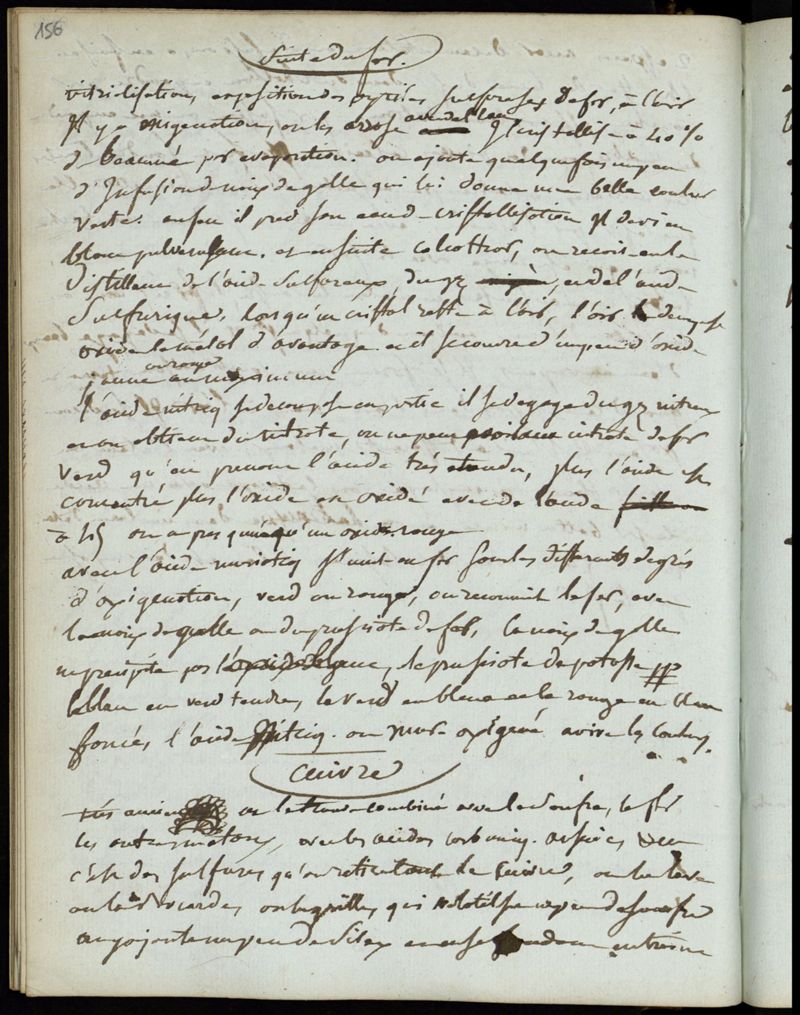 156
Suite du fer.
vitriolisation, exposition des pyrites sulfureuses de fer, à l'air
Il y a oxigenation, on les arose avec de l'eau Il cristallise à 40 %
de Beaumé par evaporation. on ajoute quelquefois un peu
d'Infusion de noix de galle qui lui donne une belle couleur
verte. au feu il perd son eau de cristallisation Il devient
blanc pulverulent. et ensuite colcothar, on recoit en le
distillant de l'acide sulfureux, du gaz, et de l'acide
sulfurique. lorsqu'un cristal reste à l'air, l'air le decompose
oxide le métal d'avantage et il se couvre d'un peu d'oxide
jaune ou rouge au maximum
l'acide nitriq se decompose en partie il se degage du gaz nitreux
et on obtient du nitrate, on ne peut avoir nitrate de fer
verd qu'en prenant l'acide trés etendu, plus l'acide est
concentré plus l'oxide est oxidé avec de l'acide
à 45 on a pas qu'un oxide rouge
avec l'acide muriatiq Il s'unit au fer sous les différents degrés
d'oxigenation, verd ou rouge, on reconnait le fer, avec
la noix de galle ou du prussiate de fer, la noix de galle
ne precipite pas l'oxide blanc, le prussiate de potasse pp
le blanc en verd tendre, le verd en bleu et le rouge en bleu
foncés, l'acide nitriq. ou mur. oxigené avive les couleurs.
Cuivre
trés ancien on le trouve combiné avec le soufre, le fer
les autres metaux, avec les acides carboniq. arsenic &
c'est des sulfures qu'on retire le Cuivre, on le lave
on le bocarde, on le grille, qui volatilise un peu de soufre
on y ajoute un peu de Silex en se fondant entraine